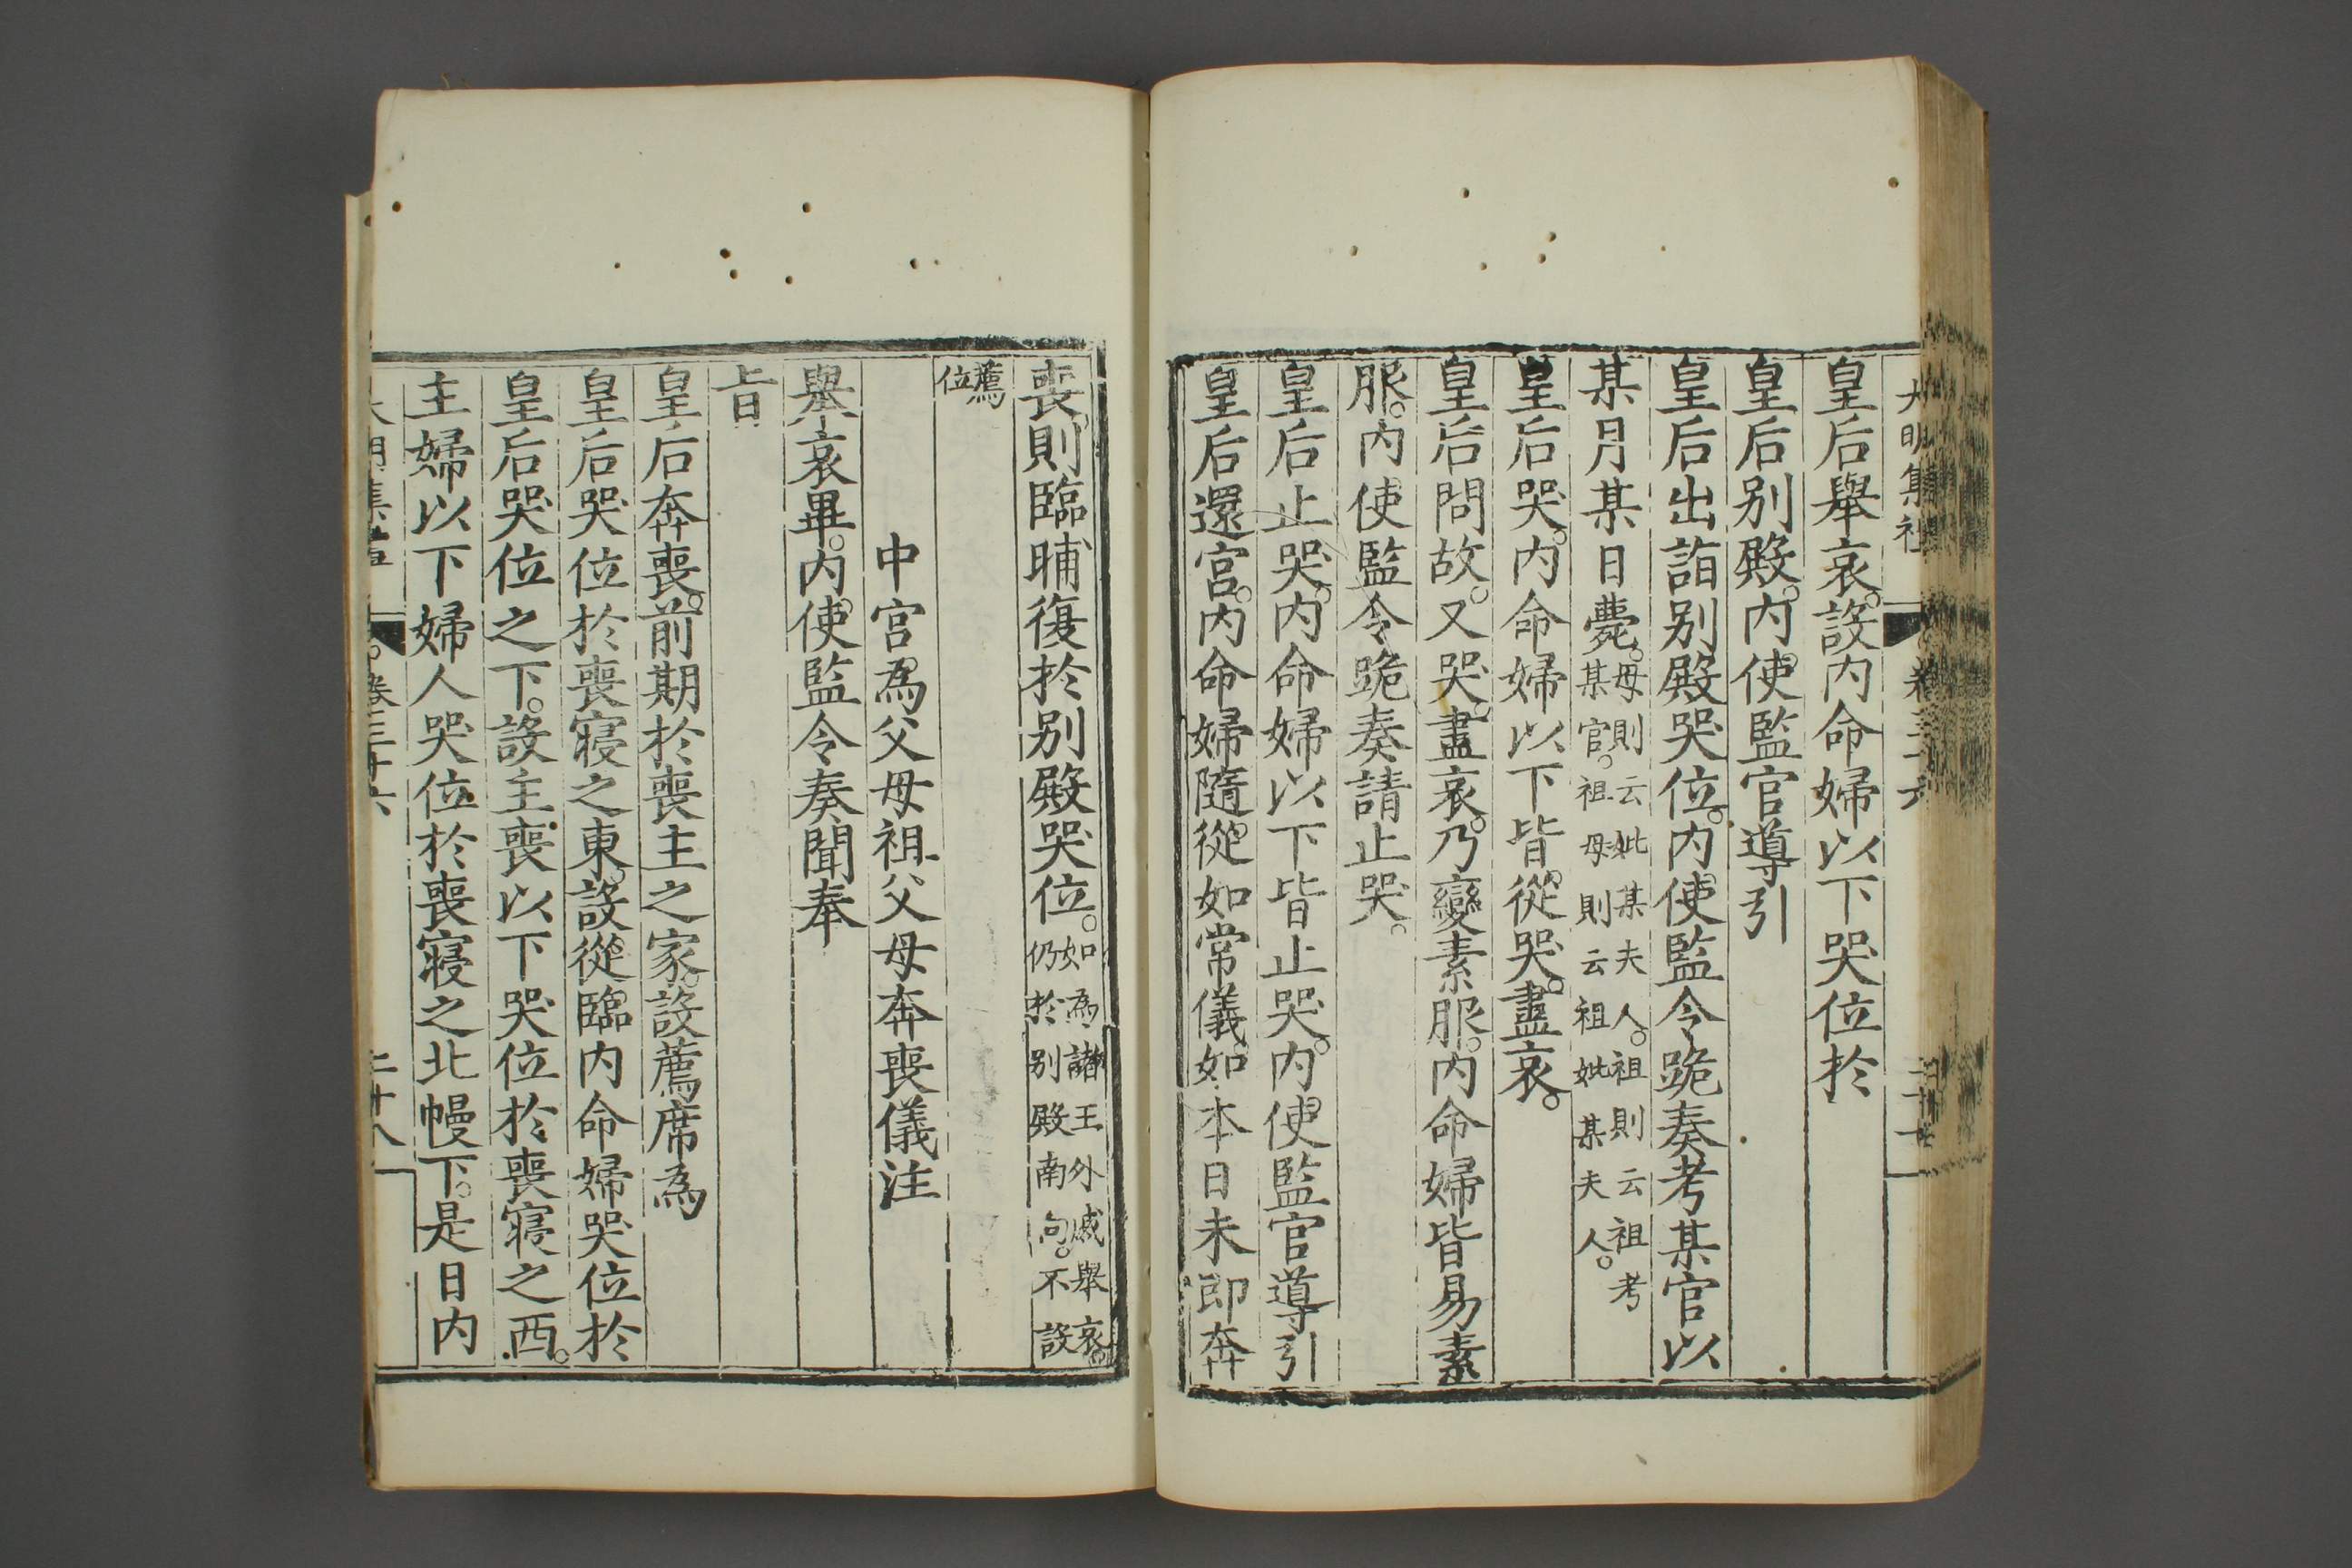 皇后舉哀。設内命婦以下哭位於
皇后别殿。内使監官導引
皇后出詣别殿哭位。内使監令跪奏考某官以
某月某日薨。母則云妣某夫人。祖則云祖考
某官。祖母則云祖妣某夫人。
皇后哭。内命婦以下皆從哭。盡哀。
皇后問故。又哭。盡哀。乃變素服。内命婦皆易素
服。内使監令跪奏請止哭。
皇后止哭。内命婦以下皆止哭。内使監官導引
皇后還宮。内命婦隨從如常儀。如本日未即奔
喪。則臨晡復於别殿哭位。如為諸王外戚舉哀。
仍於别殿南向。不設
薦
位
中宮為父母祖父母奔喪儀注
舉哀畢。内使監令奏聞奉
旨
皇后奔喪。前期於喪主之家。設薦席為
皇后哭位於喪寢之東。設從臨内命婦哭位於
皇后哭位之下。設主喪以下哭位於喪寢之西。
主婦以下婦人哭位於喪寢之北幔下。是日内
卷三十六
二十八